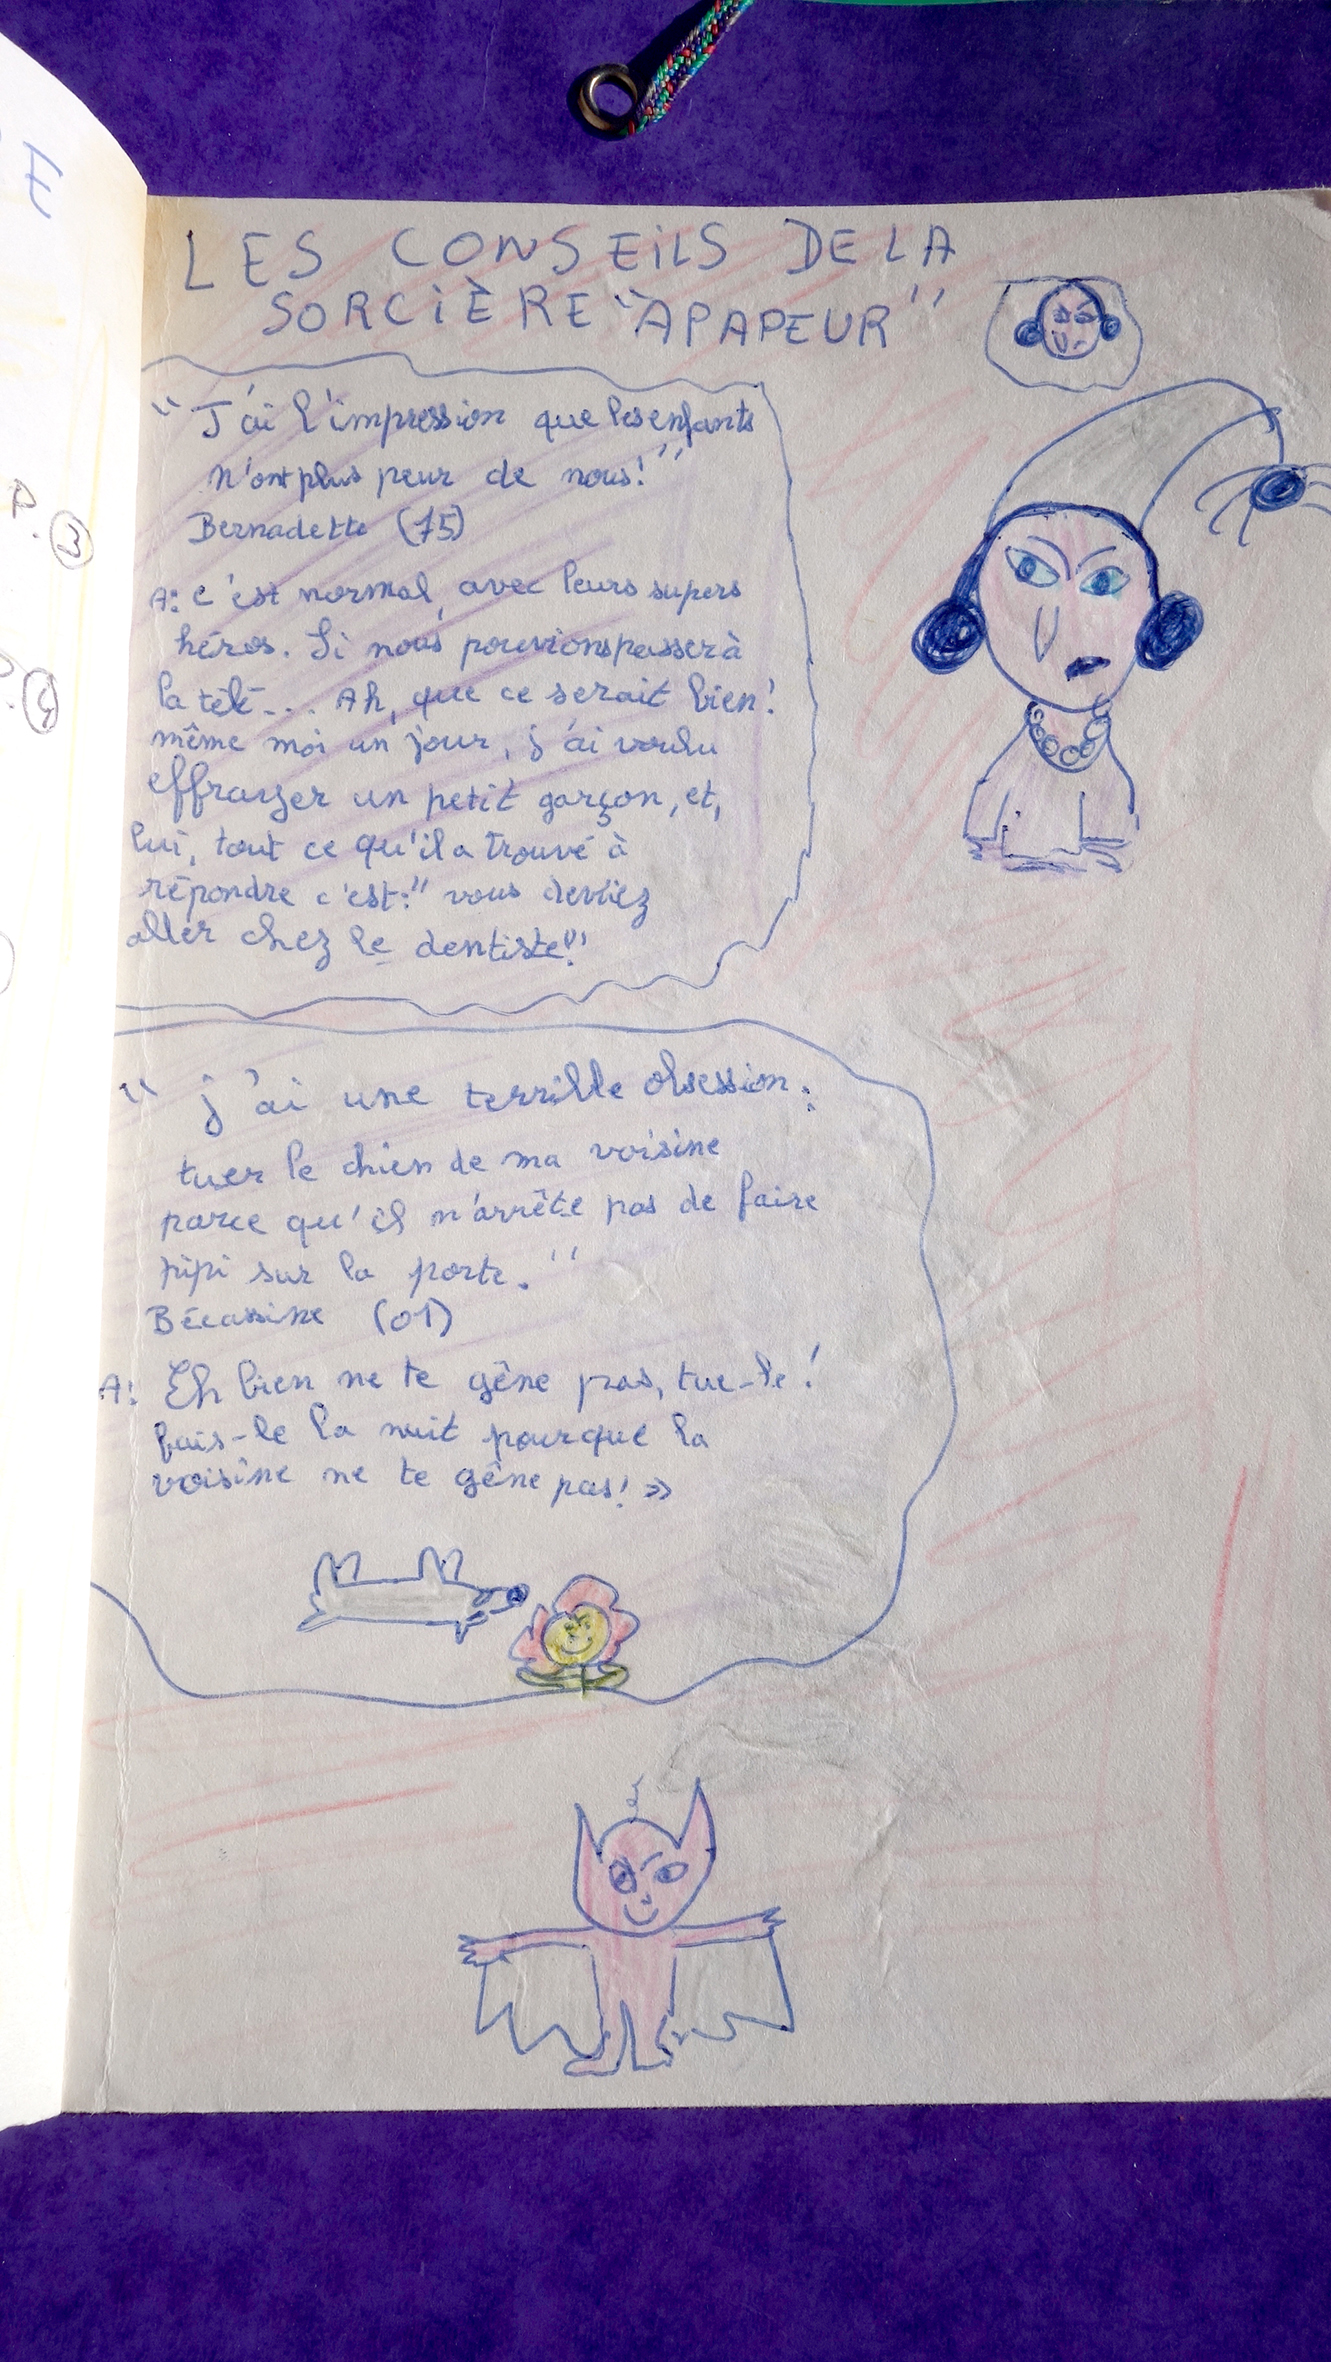 LES CONSEILS DE LA
SORCIÈRE "APAPEUR"
"J'ai l'impression que les enfants
n'ont plus peur de nous!"
Bernadette (75)
A: C'est normal, avec leurs supers
héros. Si nous pouvions passer à
la télé... Ah, que ce serait bien!
même moi un jour, j'ai voulu
effrayer un petit garçon, et,
lui, tout ce qu'il a trouvé à
répondre c'est: "vous devriez
aller chez le dentiste!"
"j'ai une terrible obsession:
tuer le chien de ma voisine
parce qu'il n'arrête pas de faire
pipi sur la porte."
Bécassine (01)
A: Eh bien ne te gêne pas, tue-le!
fais-le la nuit pour que la
voisine ne te gêne pas! »
E
P. 3
P. 4